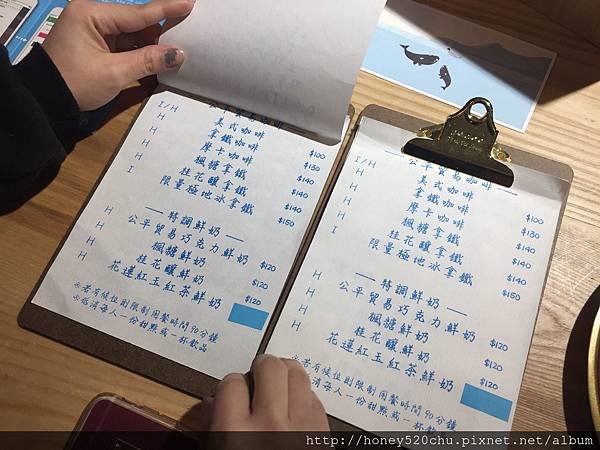 公平貿易咖啡
I/H 美式咖啡 $100
H 拿鐵咖啡 $130
H 摩卡咖啡 $140
H 楓糖拿鐵 $140
H 桂花釀拿鐵 $140
I 限量極地冰拿鐵 $150
特調鮮奶
H 公平貿易巧克力鮮奶
H 楓糖鮮奶 $120
H 桂花釀鮮奶 $120
H 花蓮紅玉紅茶鮮奶 $120
※若有候位則限制用餐時間90分鐘
※低消每人一份甜點或一杯飲品
公平貿易咖啡
I/H 美式咖啡 $100
H 拿鐵咖啡 $130
H 摩卡咖啡 $140
H 楓糖拿鐵 $140
H 桂花釀拿鐵 $140
I 限量極地冰拿鐵 $150
特調鮮奶
H 公平貿易巧克力鮮奶
H 楓糖鮮奶 $120
H 桂花釀鮮奶 $120
H 花蓮紅玉紅茶鮮奶 $120
※若有候位則限制用餐時間90分鐘
※低消每人一份甜點或一杯飲品
http://honey520chu.pixnet.net/album